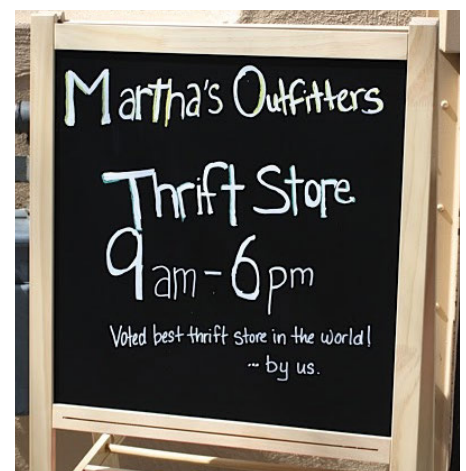 Martha's Outfitters
Thrift Store
9am-6pm
Voted best thrift store in the world!
... by us.